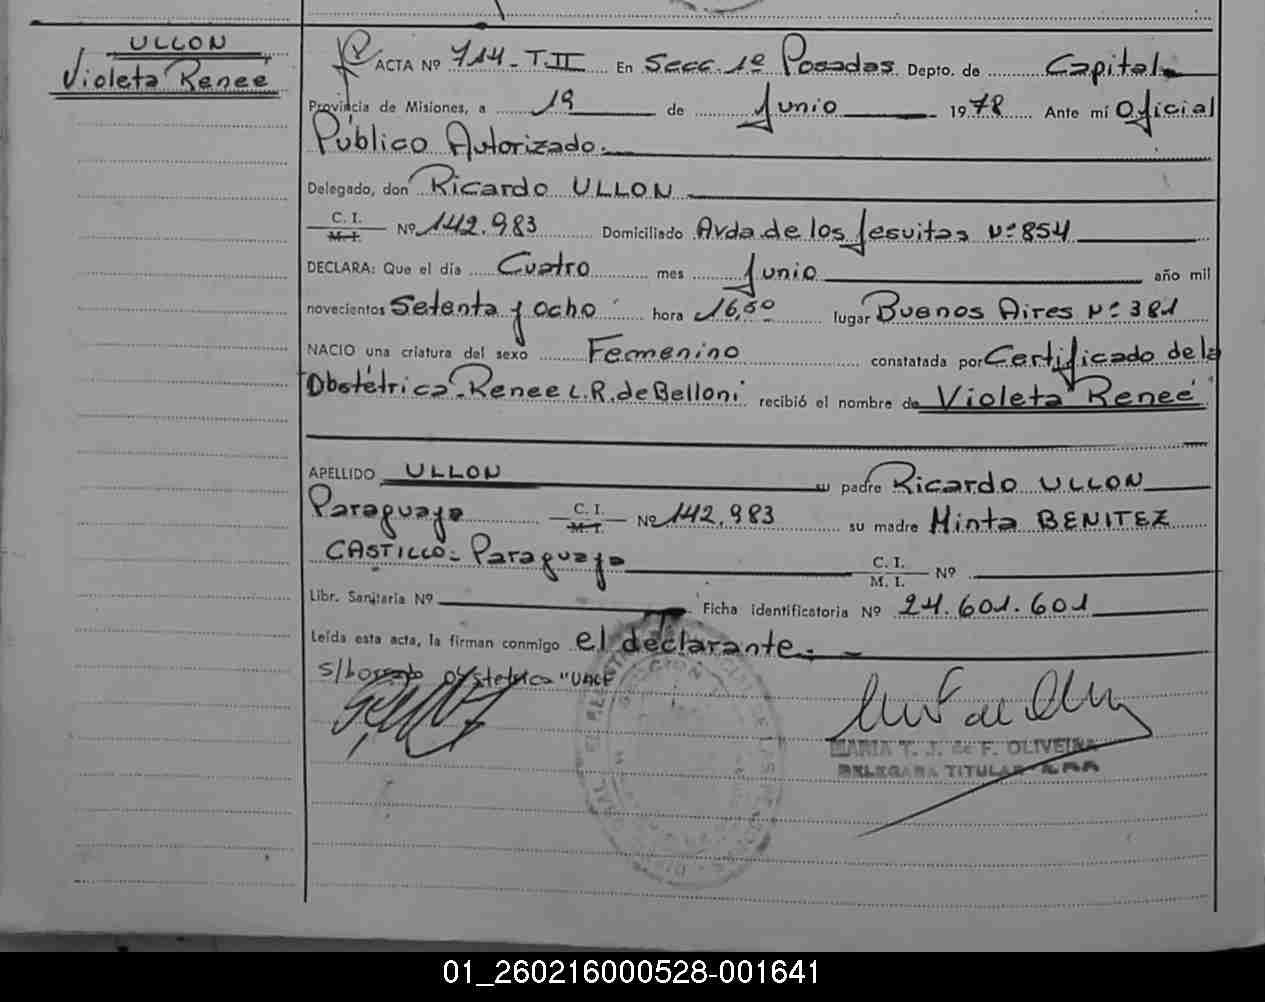 ULLON
Violeta Renee
ACTA Nº 714 - T. II En Secc. 1º Posadas Depto. de Capital
Provincia de Misiones, a 19 de Junio 1978 Ante mí Oficial
Público Autorizado.
Delegado, don Ricardo ULLON
C. I. M. I. Nº 142.983 Domiciliado Avda. de los Jesuitas Nº 854
DECLARA: Que el día Cuatro mes Junio año mil
novecientos Setenta y ocho hora 16,50 lugar Buenos Aires Nº 381
NACIO una criatura del sexo Femenino constatada por Certificado de la
Obstétrica - Renee L. R. de Belloni recibió el nombre de Violeta Reneé
APELLIDO ULLON su padre Ricardo ULLON
Paraguayo C. I. M. I. Nº 142.983 su madre Minta BENITEZ
CASTILLO - Paraguaya C. I. M. I. Nº
Libr. Sanitaria Nº Ficha identificatoria Nº 24.601.601
Leída esta acta, la firman conmigo el declarante. -
MARIA T. J. de F. OLIVEIRA
DELEGADA TITULAR
01_260216000528-001641